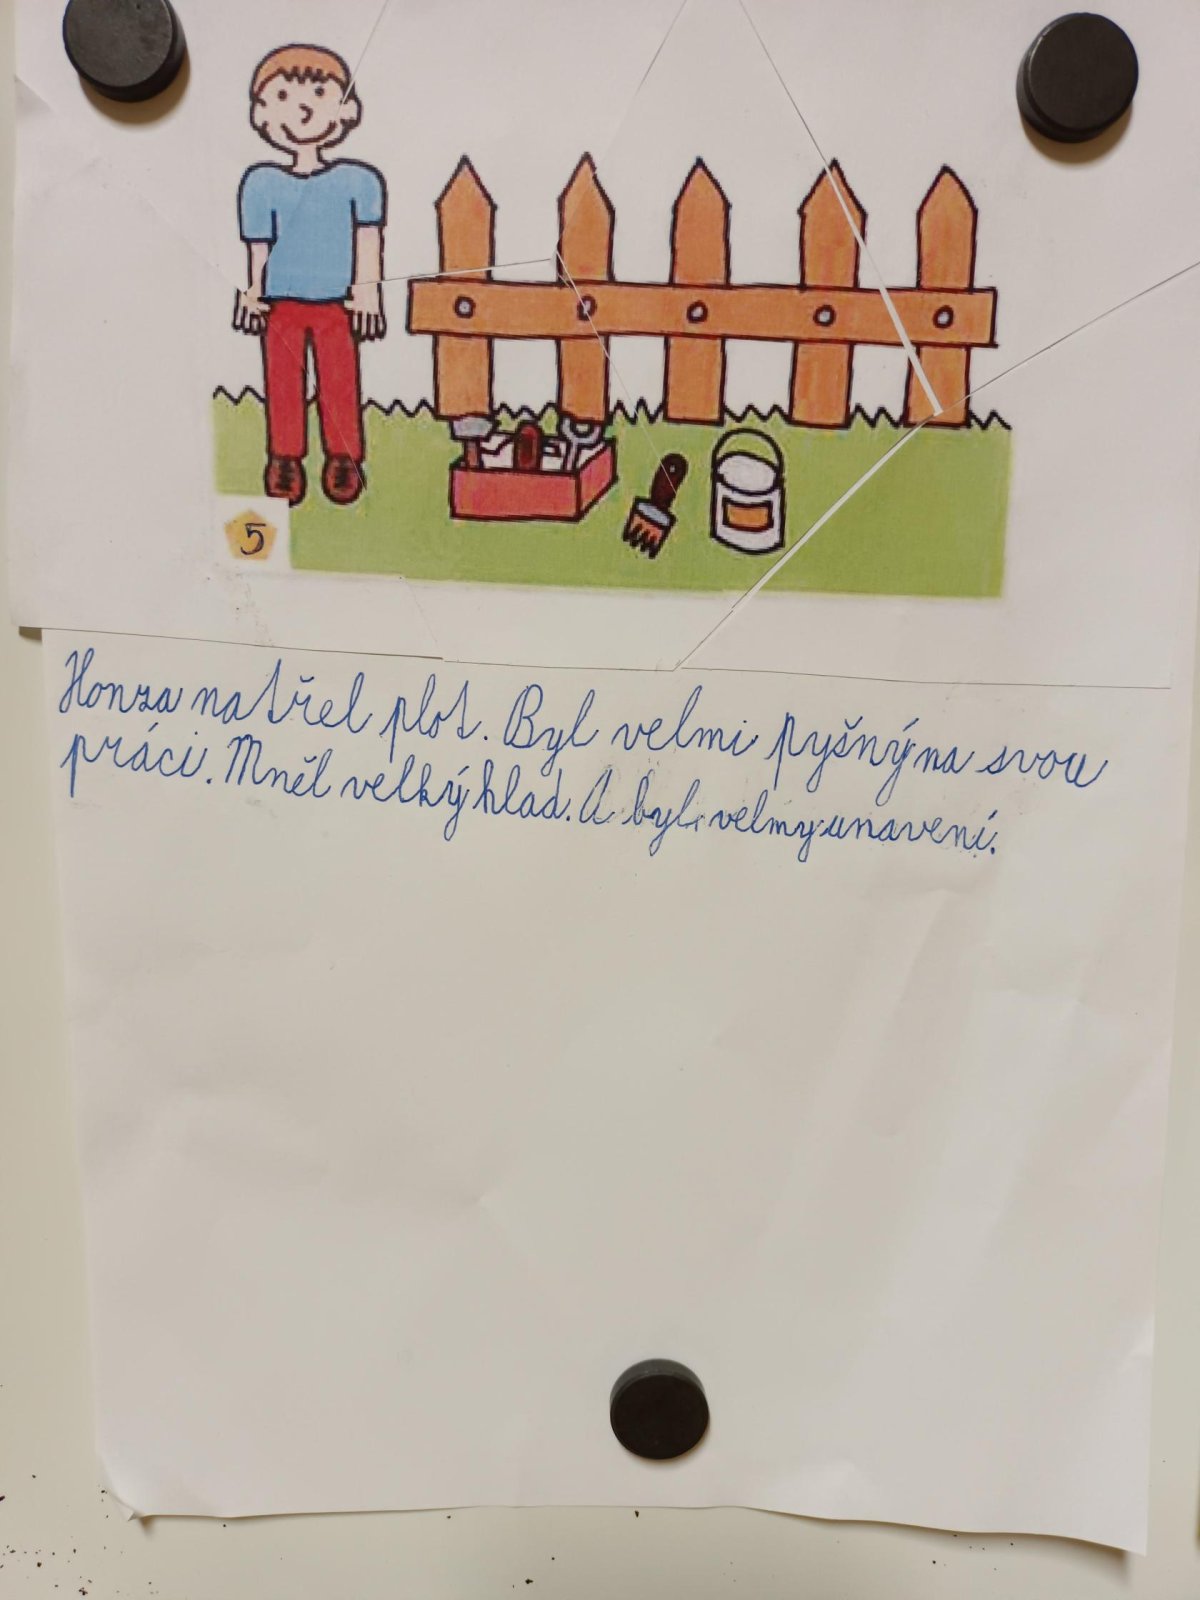 5
Honza natřel plot. Byl velmi pyšný na svou
práci. Mněl velký hlad. A byl velmy unavení.